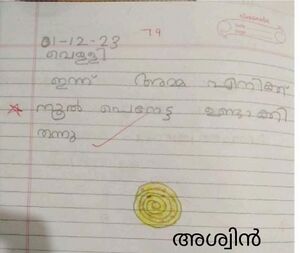 01-12-23
വെള്ളി
ഇന്ന് അമ്മ എനിക്ക്
നൂൽ പൊറോട്ട ഉണ്ടാക്കി
തന്നു
അശ്വിൻ